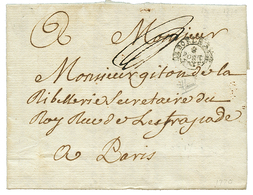 A
Monsieur
Monsieur giton de la
Ribellerie Secretaire du
Roy Rue de
a Paris